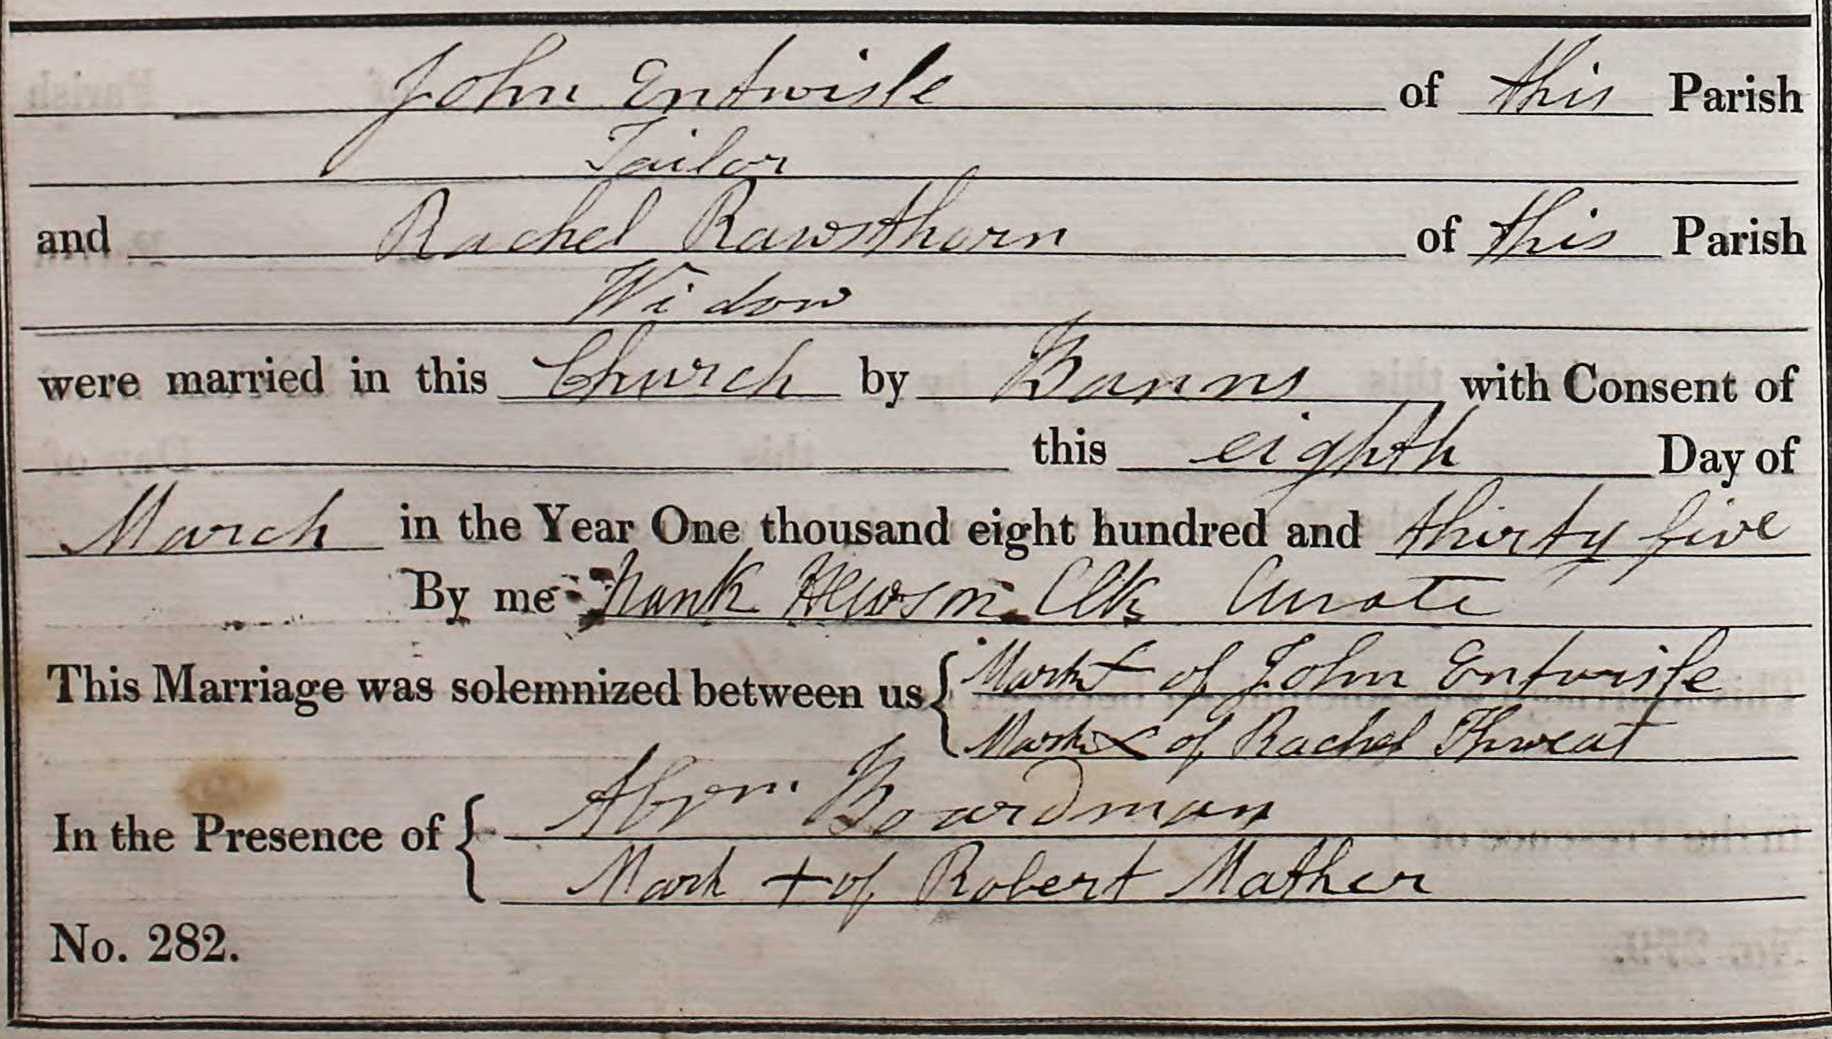 John Entwisle of this Parish
Tailor
and Rachel Rawsthorn of this Parish
Widow
were married in this Church by Banns with Consent of
this eighth Day of
March in the Year One thousand eight hundred and thirty five
By me Clk Curate
This Marriage was solemnized between us { Mark + of John Entwisle
Mark x of Rachel Threat
In the Presence of { Abrm. Boardman
Mark + of Robert Mather
No. 282.